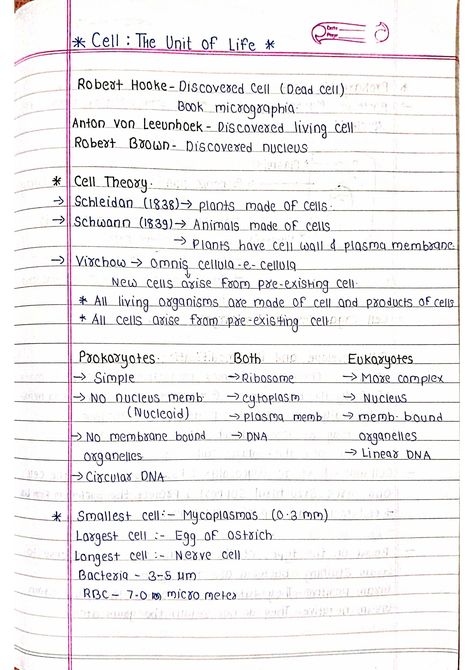 * Cell : The Unit of Life *
Date
Page
Robert Hooke - Discovered cell (Dead cell)
Book micrographia
Anton von Leeunhoek - Discovered living cell
Robert Brown - Discovered nucleus
* Cell Theory.
→ Schleidan (1838) → plants made of cells.
→ Schwann (1839) → Animals made of cells
→ Plants have cell wall & plasma membrane
→ Virchow → omnis cellula-e-cellula
New cells arise from pre-existing cell.
* All living organisms are made of cell and products of cells
* All cells arise from pre-existing cell
Prokaryotes Both Eukaryotes
→ Simple → Ribosome → More complex
→ No nucleus memb → cytoplasm → Nucleus
(Nucleoid) → plasma memb → memb. bound
→ No membrane bound → DNA organelles
organelles → Linear DNA
→ Circular DNA
* Smallest cell :- Mycoplasmas (0.3 mm)
Largest cell :- Egg of ostrich
Longest cell :- Nerve cell
Bacteria - 3-5 μm
RBC - 7.0 micro meter